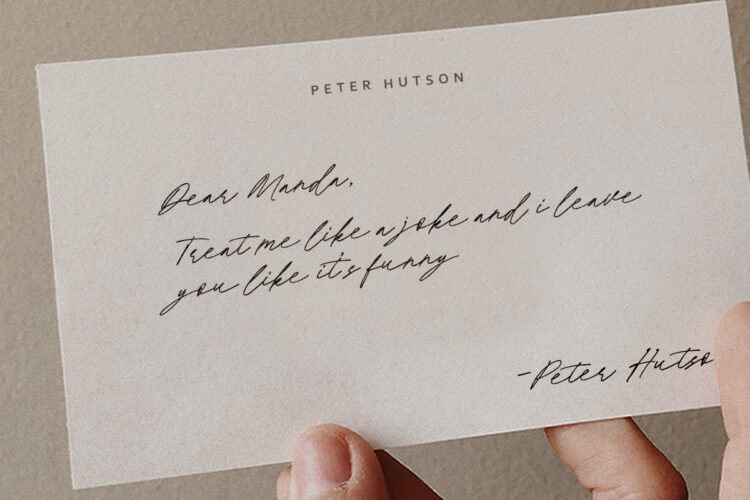 PETER HUTSON
Dear Manda,
Treat me like a joke and i leave
you like it's funny
-Peter Hutso